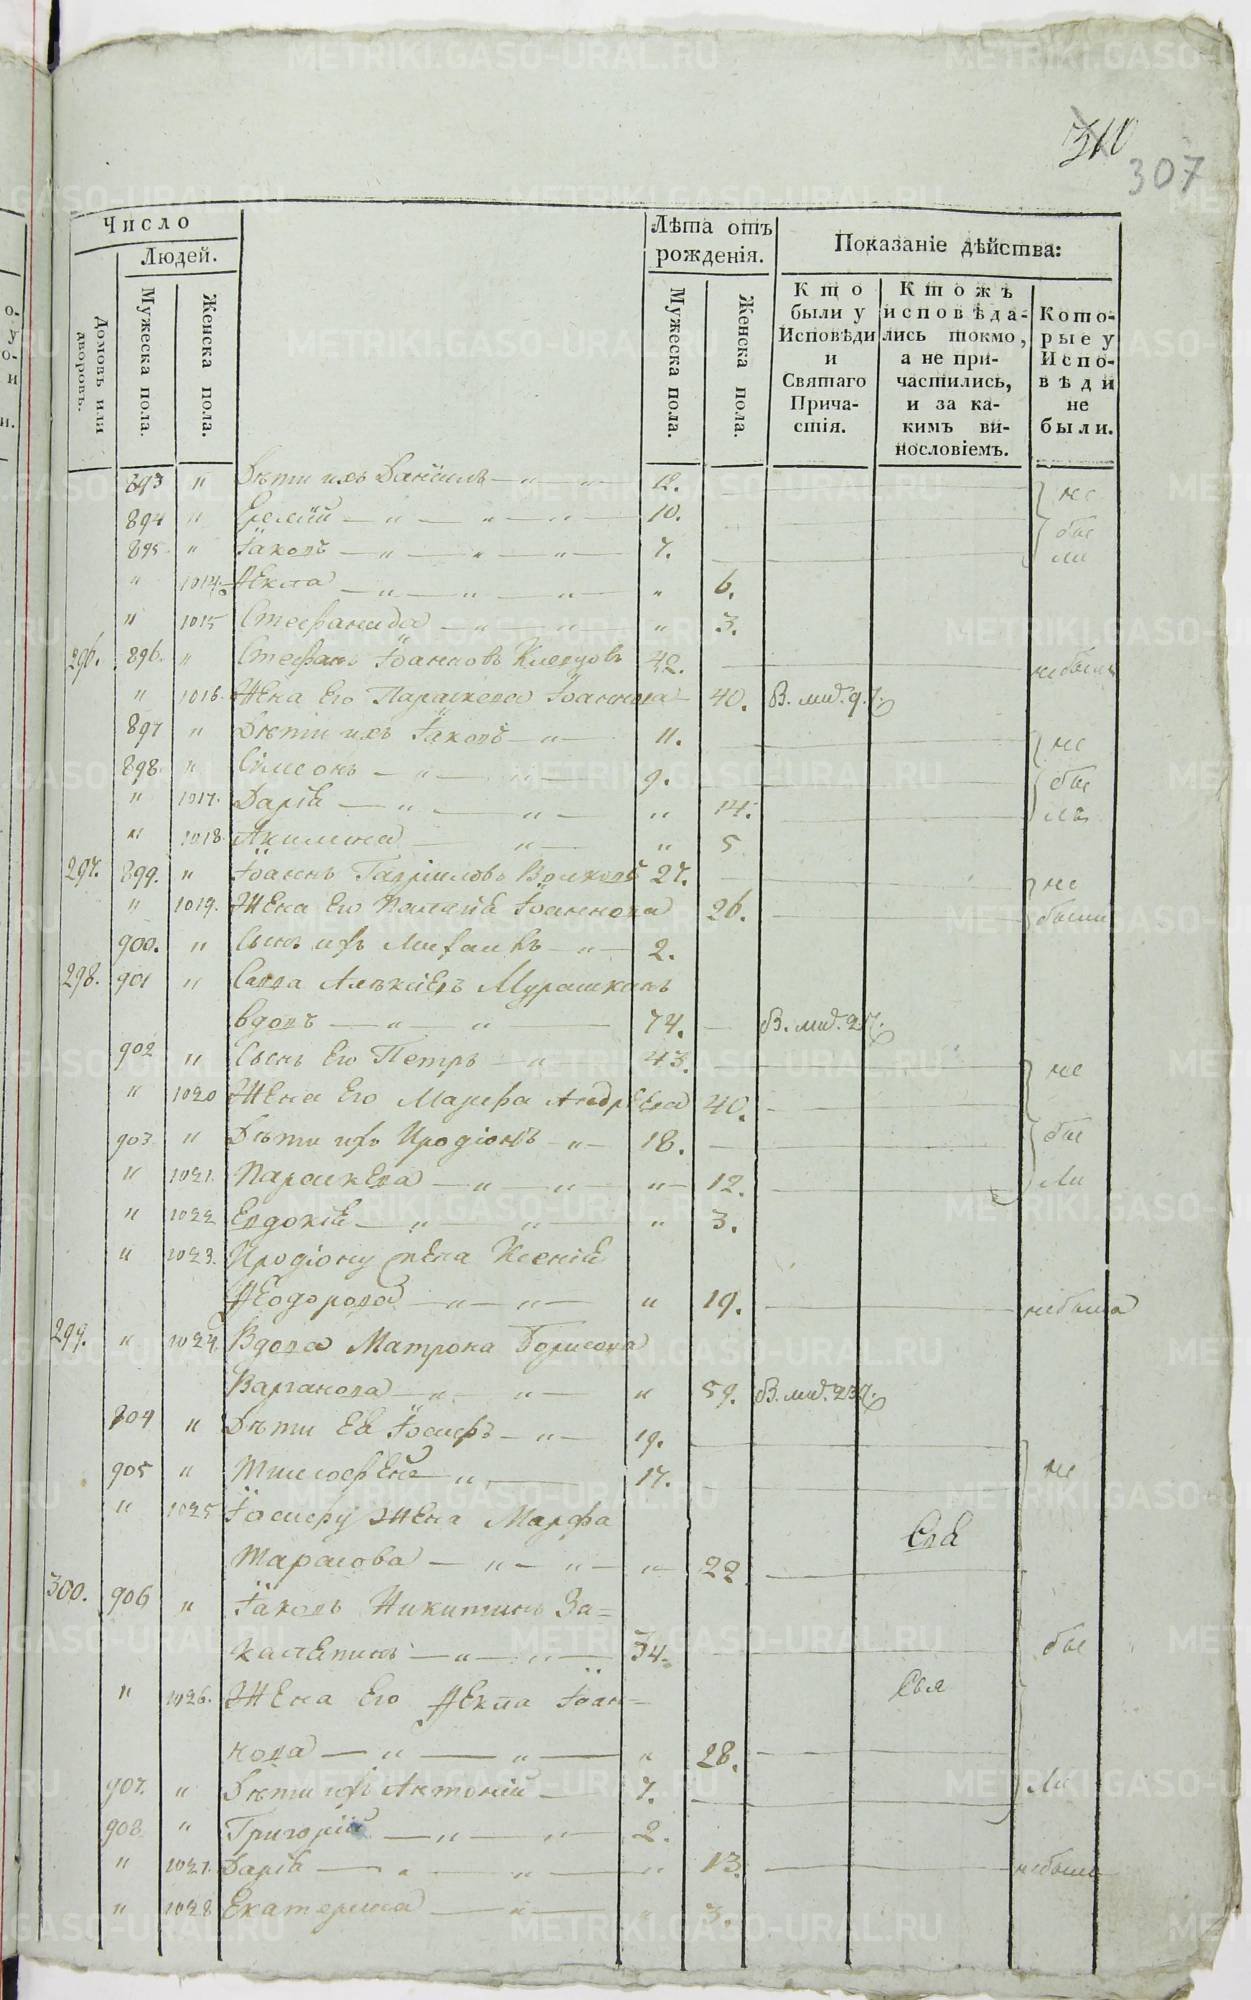 310
307
Число
Людей.
Домовъ или дворовъ.
Мужеска пола.
Женска пола.
Лѣта отъ рожденія.
Мужеска пола.
Женска пола.
Показаніе дѣйства:
Кто были у Исповѣди и Святаго Причастія.
Ктожъ исповѣдались токмо, а не причастились, и за какимъ винословіемъ.
Которые у Исповѣди не были.
893 " Дѣти ихъ Даніилъ — " — " 12. — не
894 " Еремій — " — " — " 10. — бы
895 " Іаковъ — " — " — " — 7. — ли
" 1014. Ѳекла — " — " — " — " 6.
" 1015 Стефанида — " — " — " 3.
296. 896. " Стефанъ Іоанновъ Клепцовъ 42. — небылъ
" 1016. Жена Его Параскева Іоаннова — 40. В. мид. 9.
897 " Дѣти ихъ Іаковъ — " — 11. — не
898. " Сімеонъ — " — " — 9. — бы
" 1017. Дарія — " — " — " 14. — лъ
" 1018. Акилина — " — " 5
297. 899. " Іоаннъ Гавріиловъ Волковъ 27. — не
" 1019. Жена Его Палагія Іоаннова 26. — были
900. " Сынъ ихъ Михаилъ — " — 2.
298. 901 " Савва Алексіевъ Мурашкинъ
вдовъ — " — " — 74. — В. мид.
902 " Сынъ Его Петръ — " 43. не
" 1020 Жена Его Марфа Андреева 40. —
903. " Дѣти ихъ Иродіонъ — " — 18. — бы
" 1021. Параскева — " — " — " — 12. — ли
" 1022 Евдокія — " — " — " 3.
" 1023. Иродіону жена Ксенія
Ѳеодорова — " — " — " 19. — небыла
299. " 1024. Вдова Матрона Борисова
Варганова — " — " — " 59. В. мид.
904 " Дѣти Ея Іосифъ — " — 19. —
905 " Тимофей — " — 17. — не
" 1025 Іосифу Жена Марфа
Тарасова — " — " — " — 22 —
300. 906 " Іаковъ Никитинъ За=
калепинъ — " — " — 34. — бы
" 1026. Жена Его Ѳекла Іоан=
нова — " — " — " 28. —
907. " Дѣти ихъ Антоній — 7. — ли
908. " Григорій — " — " — 2.
" 1027. Дарія — " — " — " 13. — небыла
" 1028 Екатерина — " — " 3.